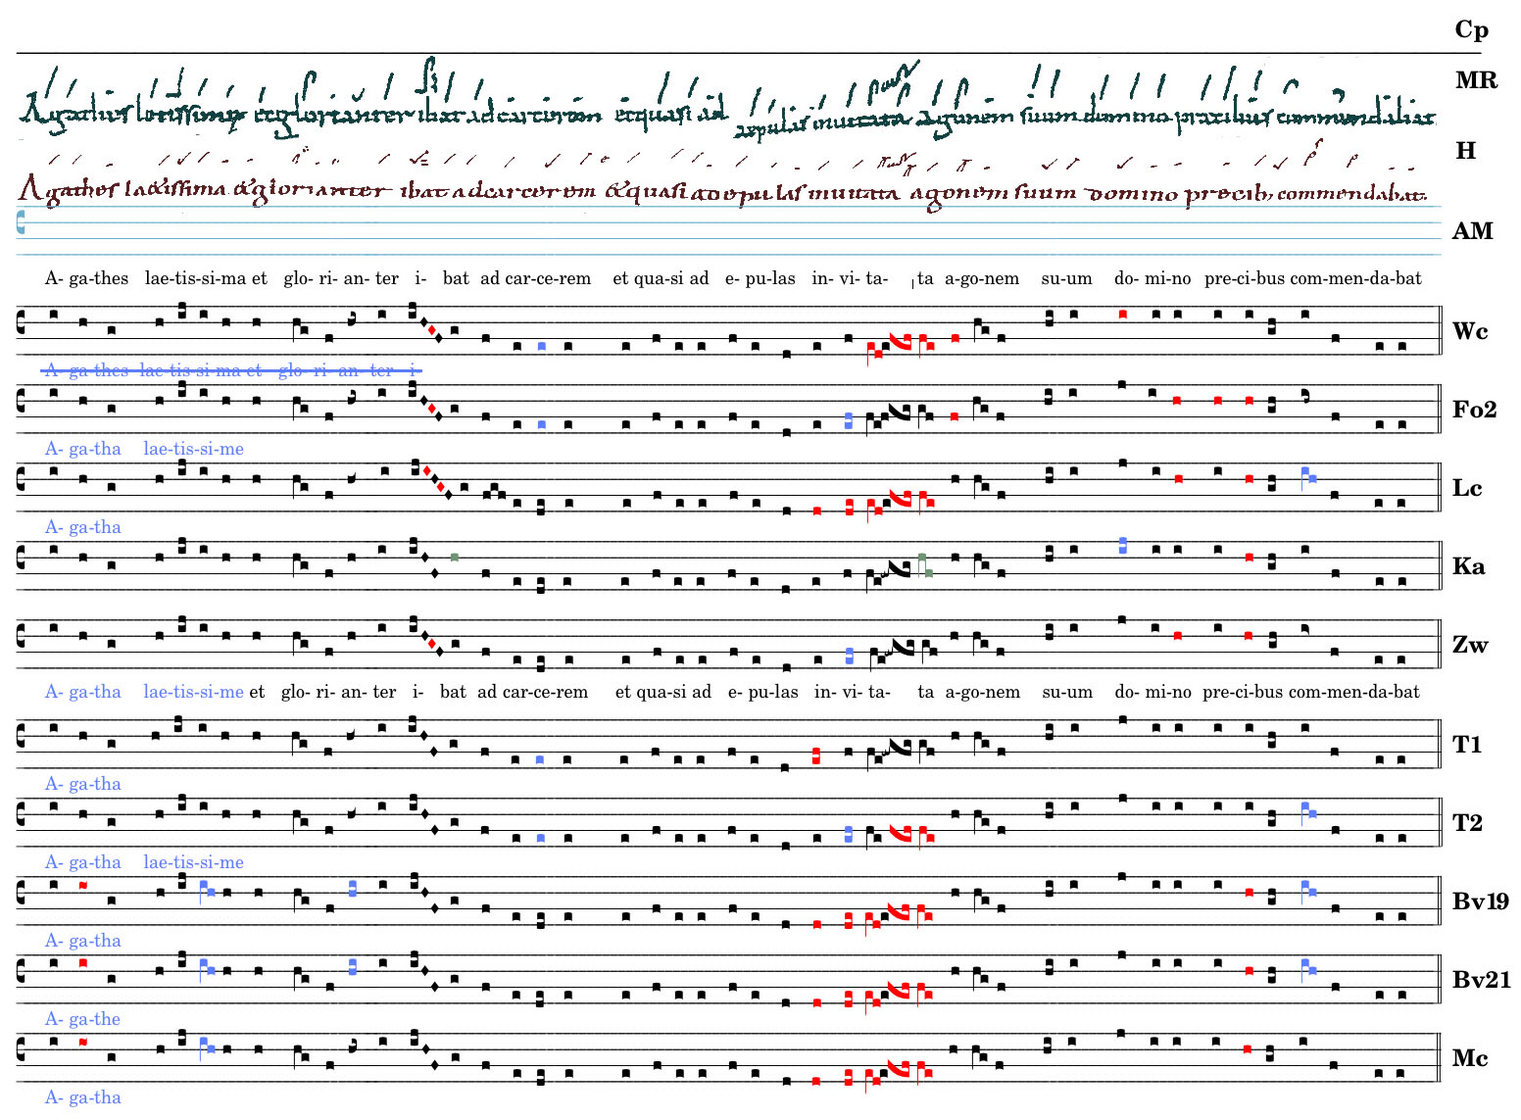 Cp
MR
H
Agathes laetissima et glorianter ibat ad carcerem et quasi ad epulas invitata agonem suum domino precib; commendabat.
AM
A- ga-thes lae-tis-si-ma et glo- ri- an- ter i- bat ad car-ce-rem et qua-si ad e- pu-las in- vi- ta- ta a-go-nem su-um do- mi-no pre-ci-bus com-men-da-bat
Wc
A- ga-thes lae-tis-si-ma et glo- ri- an- ter i-
Fo2
A- ga-tha lae-tis-si-me
Lc
A- ga-tha
Ka
Zw
A- ga-tha lae-tis-si-me et glo- ri- an- ter i- bat ad car-ce-rem et qua-si ad e- pu-las in- vi- ta- ta a-go-nem su-um do- mi-no pre-ci-bus com-men-da-bat
T1
A- ga-tha
T2
A- ga-tha lae-tis-si-me
Bv19
A- ga-tha
Bv21
A- ga-the
Mc
A- ga-tha